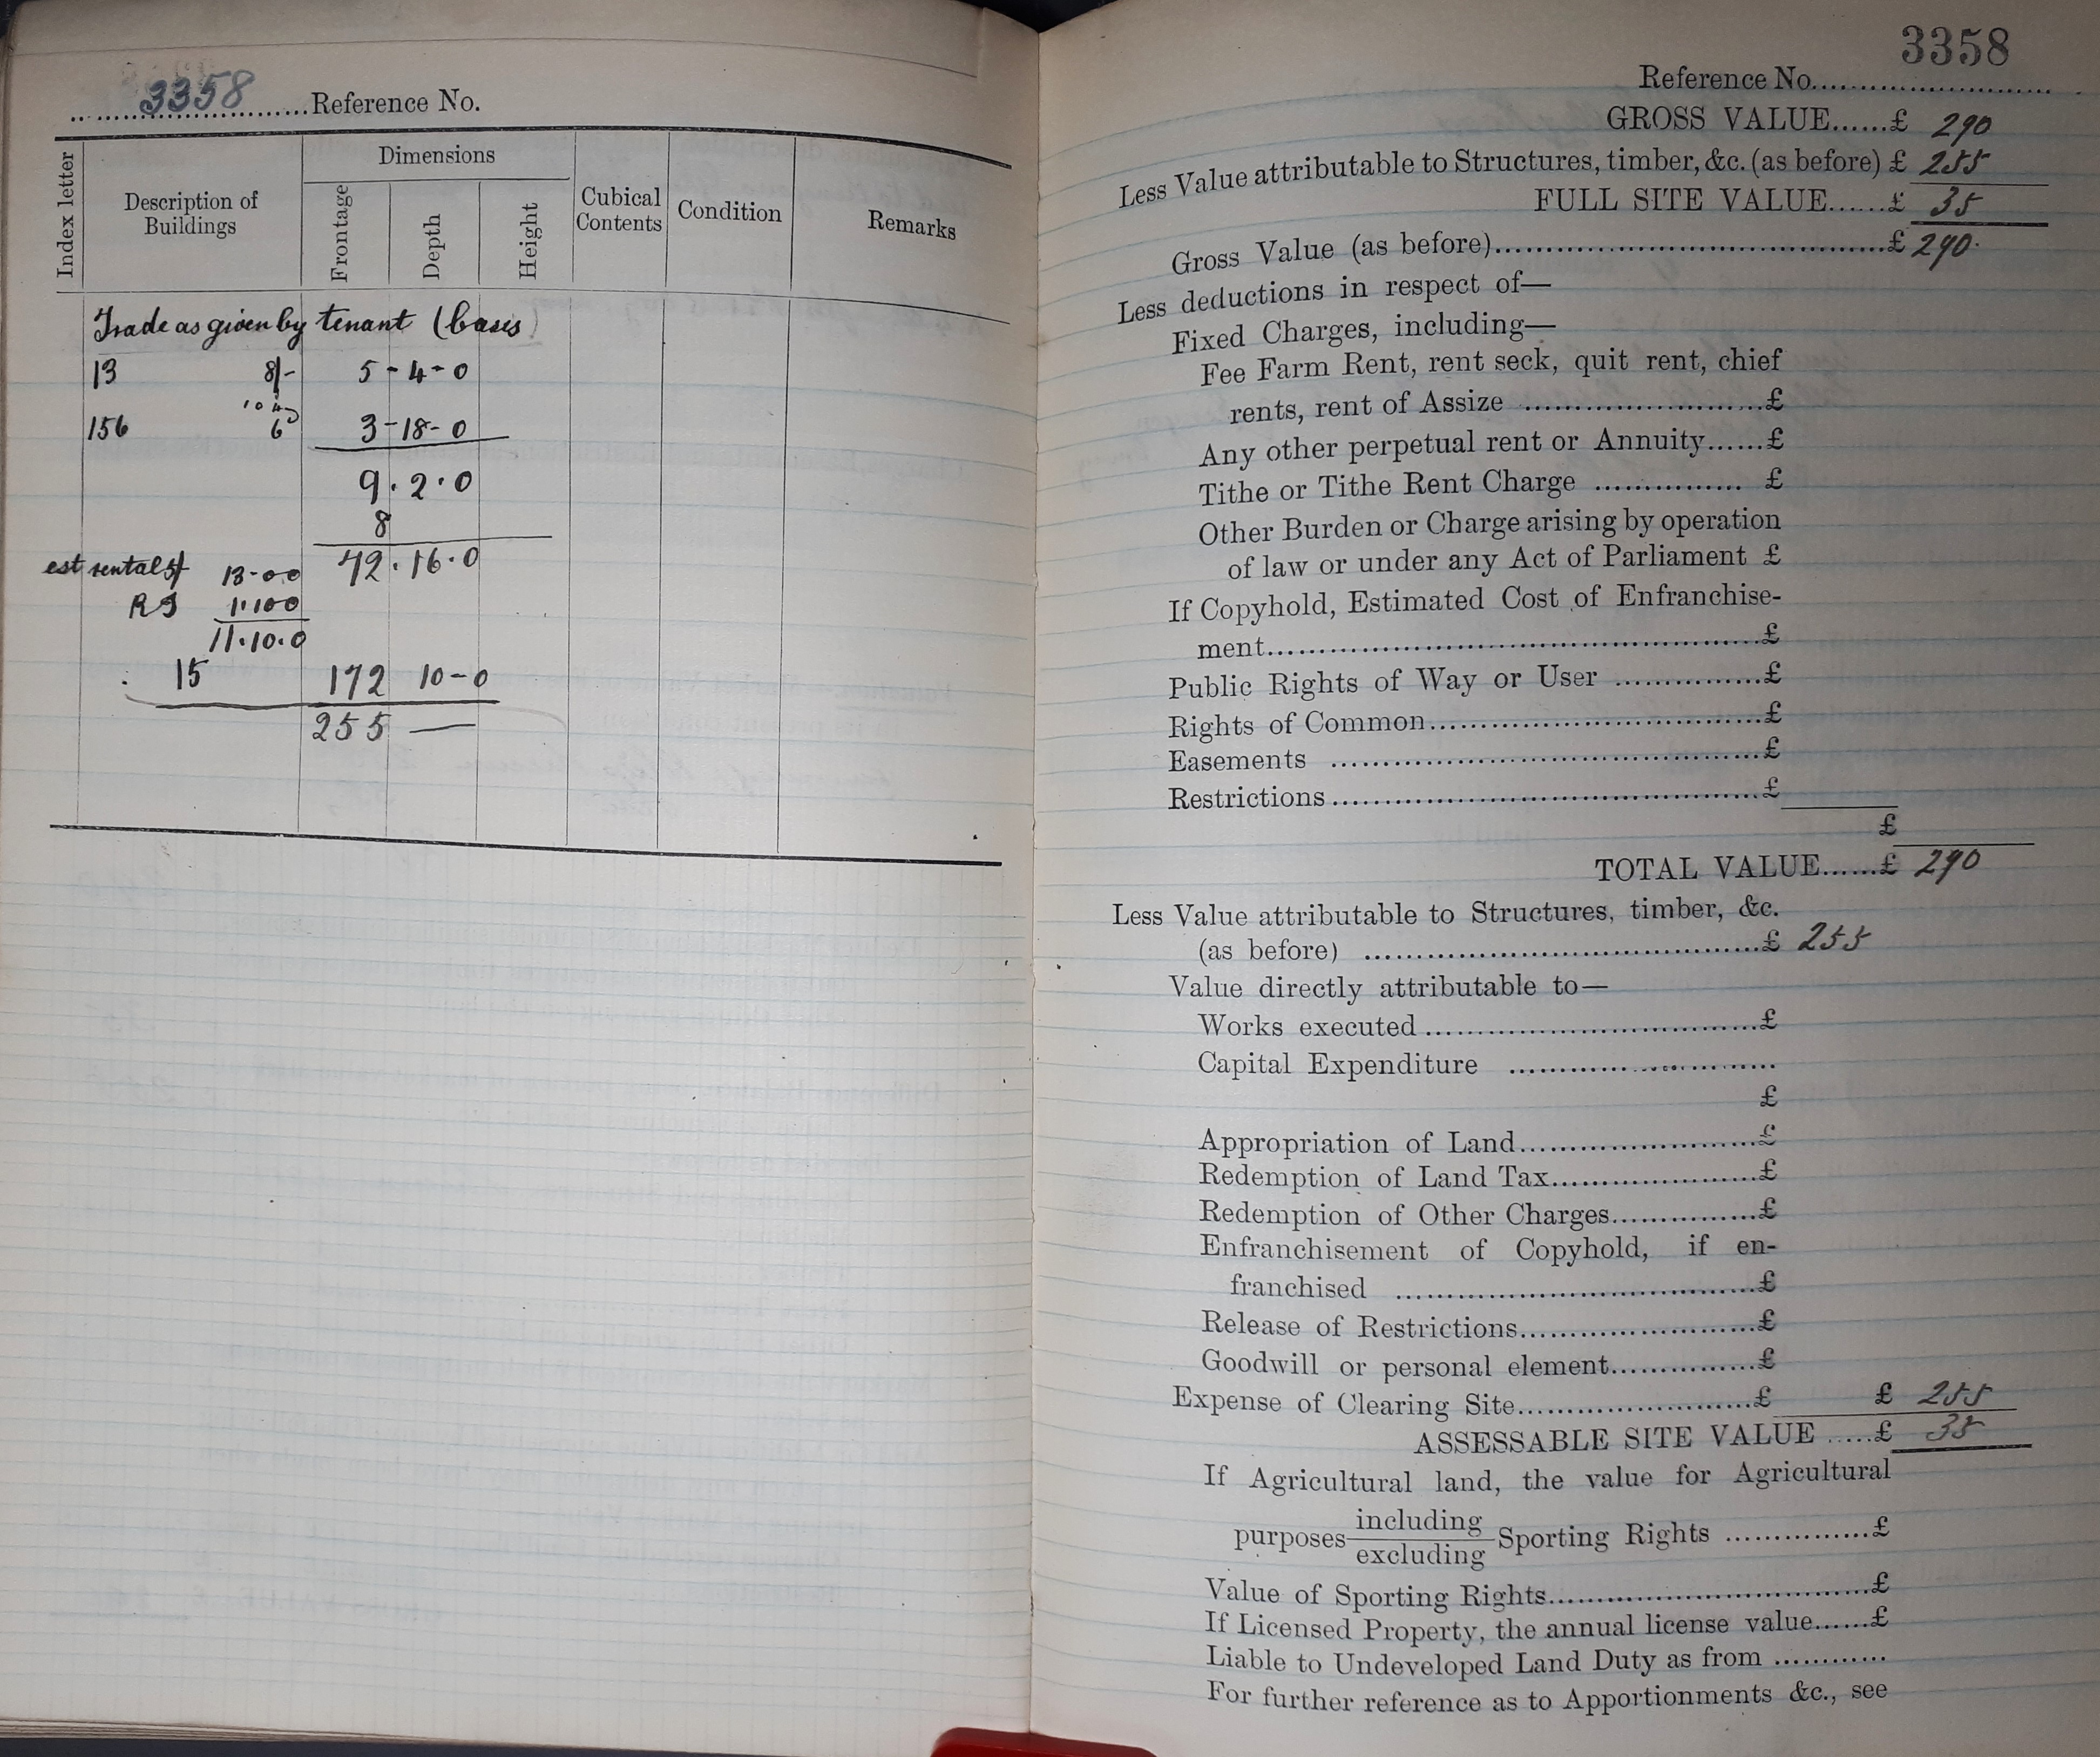 3358 Reference No.
Index letter
Description of Buildings
Dimensions
Frontage
Depth
Height
Cubical Contents
Condition
Remarks
Trade as given by tenant (
13 8/- 5-4-0
156 6 3-18-0
9.2.0
8
72.16.0
est rental 13-0-0
11.10.0
15 172 10-0
255 —
3358
Reference No.
GROSS VALUE......£ 290
Less Value attributable to Structures, timber, &c. (as before) £ 255
FULL SITE VALUE......£ 35
Gross Value (as before)......£ 290.
Less deductions in respect of—
Fixed Charges, including—
Fee Farm Rent, rent seck, quit rent, chief
rents, rent of Assize ......£
Any other perpetual rent or Annuity......£
Tithe or Tithe Rent Charge ...... £
Other Burden or Charge arising by operation
of law or under any Act of Parliament £
If Copyhold, Estimated Cost of Enfranchise-
ment......£
Public Rights of Way or User ......£
Rights of Common......£
Easements ......£
Restrictions......£
£
TOTAL VALUE......£ 290
Less Value attributable to Structures, timber, &c.
(as before) ......£ 255
Value directly attributable to—
Works executed......£
Capital Expenditure ......
£
Appropriation of Land......£
Redemption of Land Tax......£
Redemption of Other Charges......£
Enfranchisement of Copyhold, if en-
franchised ......£
Release of Restrictions......£
Goodwill or personal element......£
Expense of Clearing Site......£ £ 255
ASSESSABLE SITE VALUE ......£ 35
If Agricultural land, the value for Agricultural
purposes including
excluding Sporting Rights ......£
Value of Sporting Rights......£
If Licensed Property, the annual license value......£
Liable to Undeveloped Land Duty as from ......
For further reference as to Apportionments &c., see